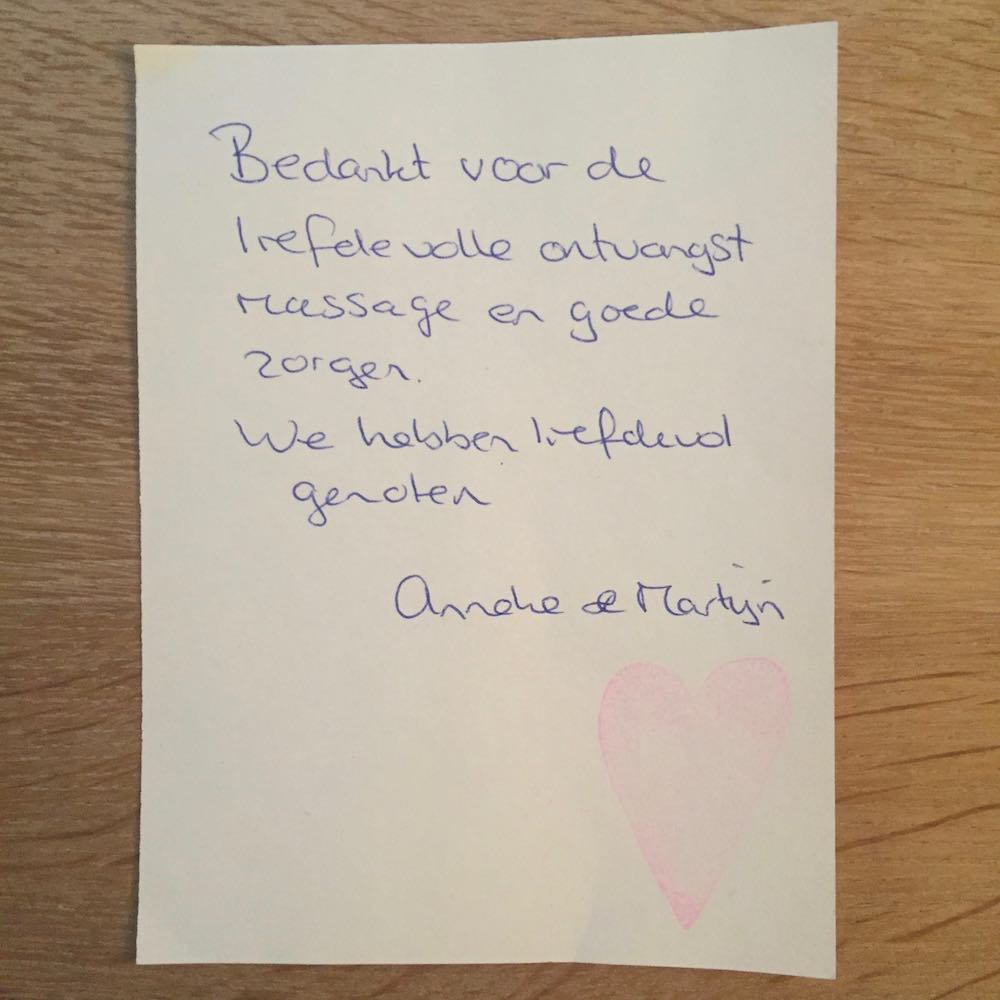 Bedankt voor de
liefdevolle ontvangst
massage en goede
zorgen.
We hebben liefdevol
genoten
Anneke & Martijn